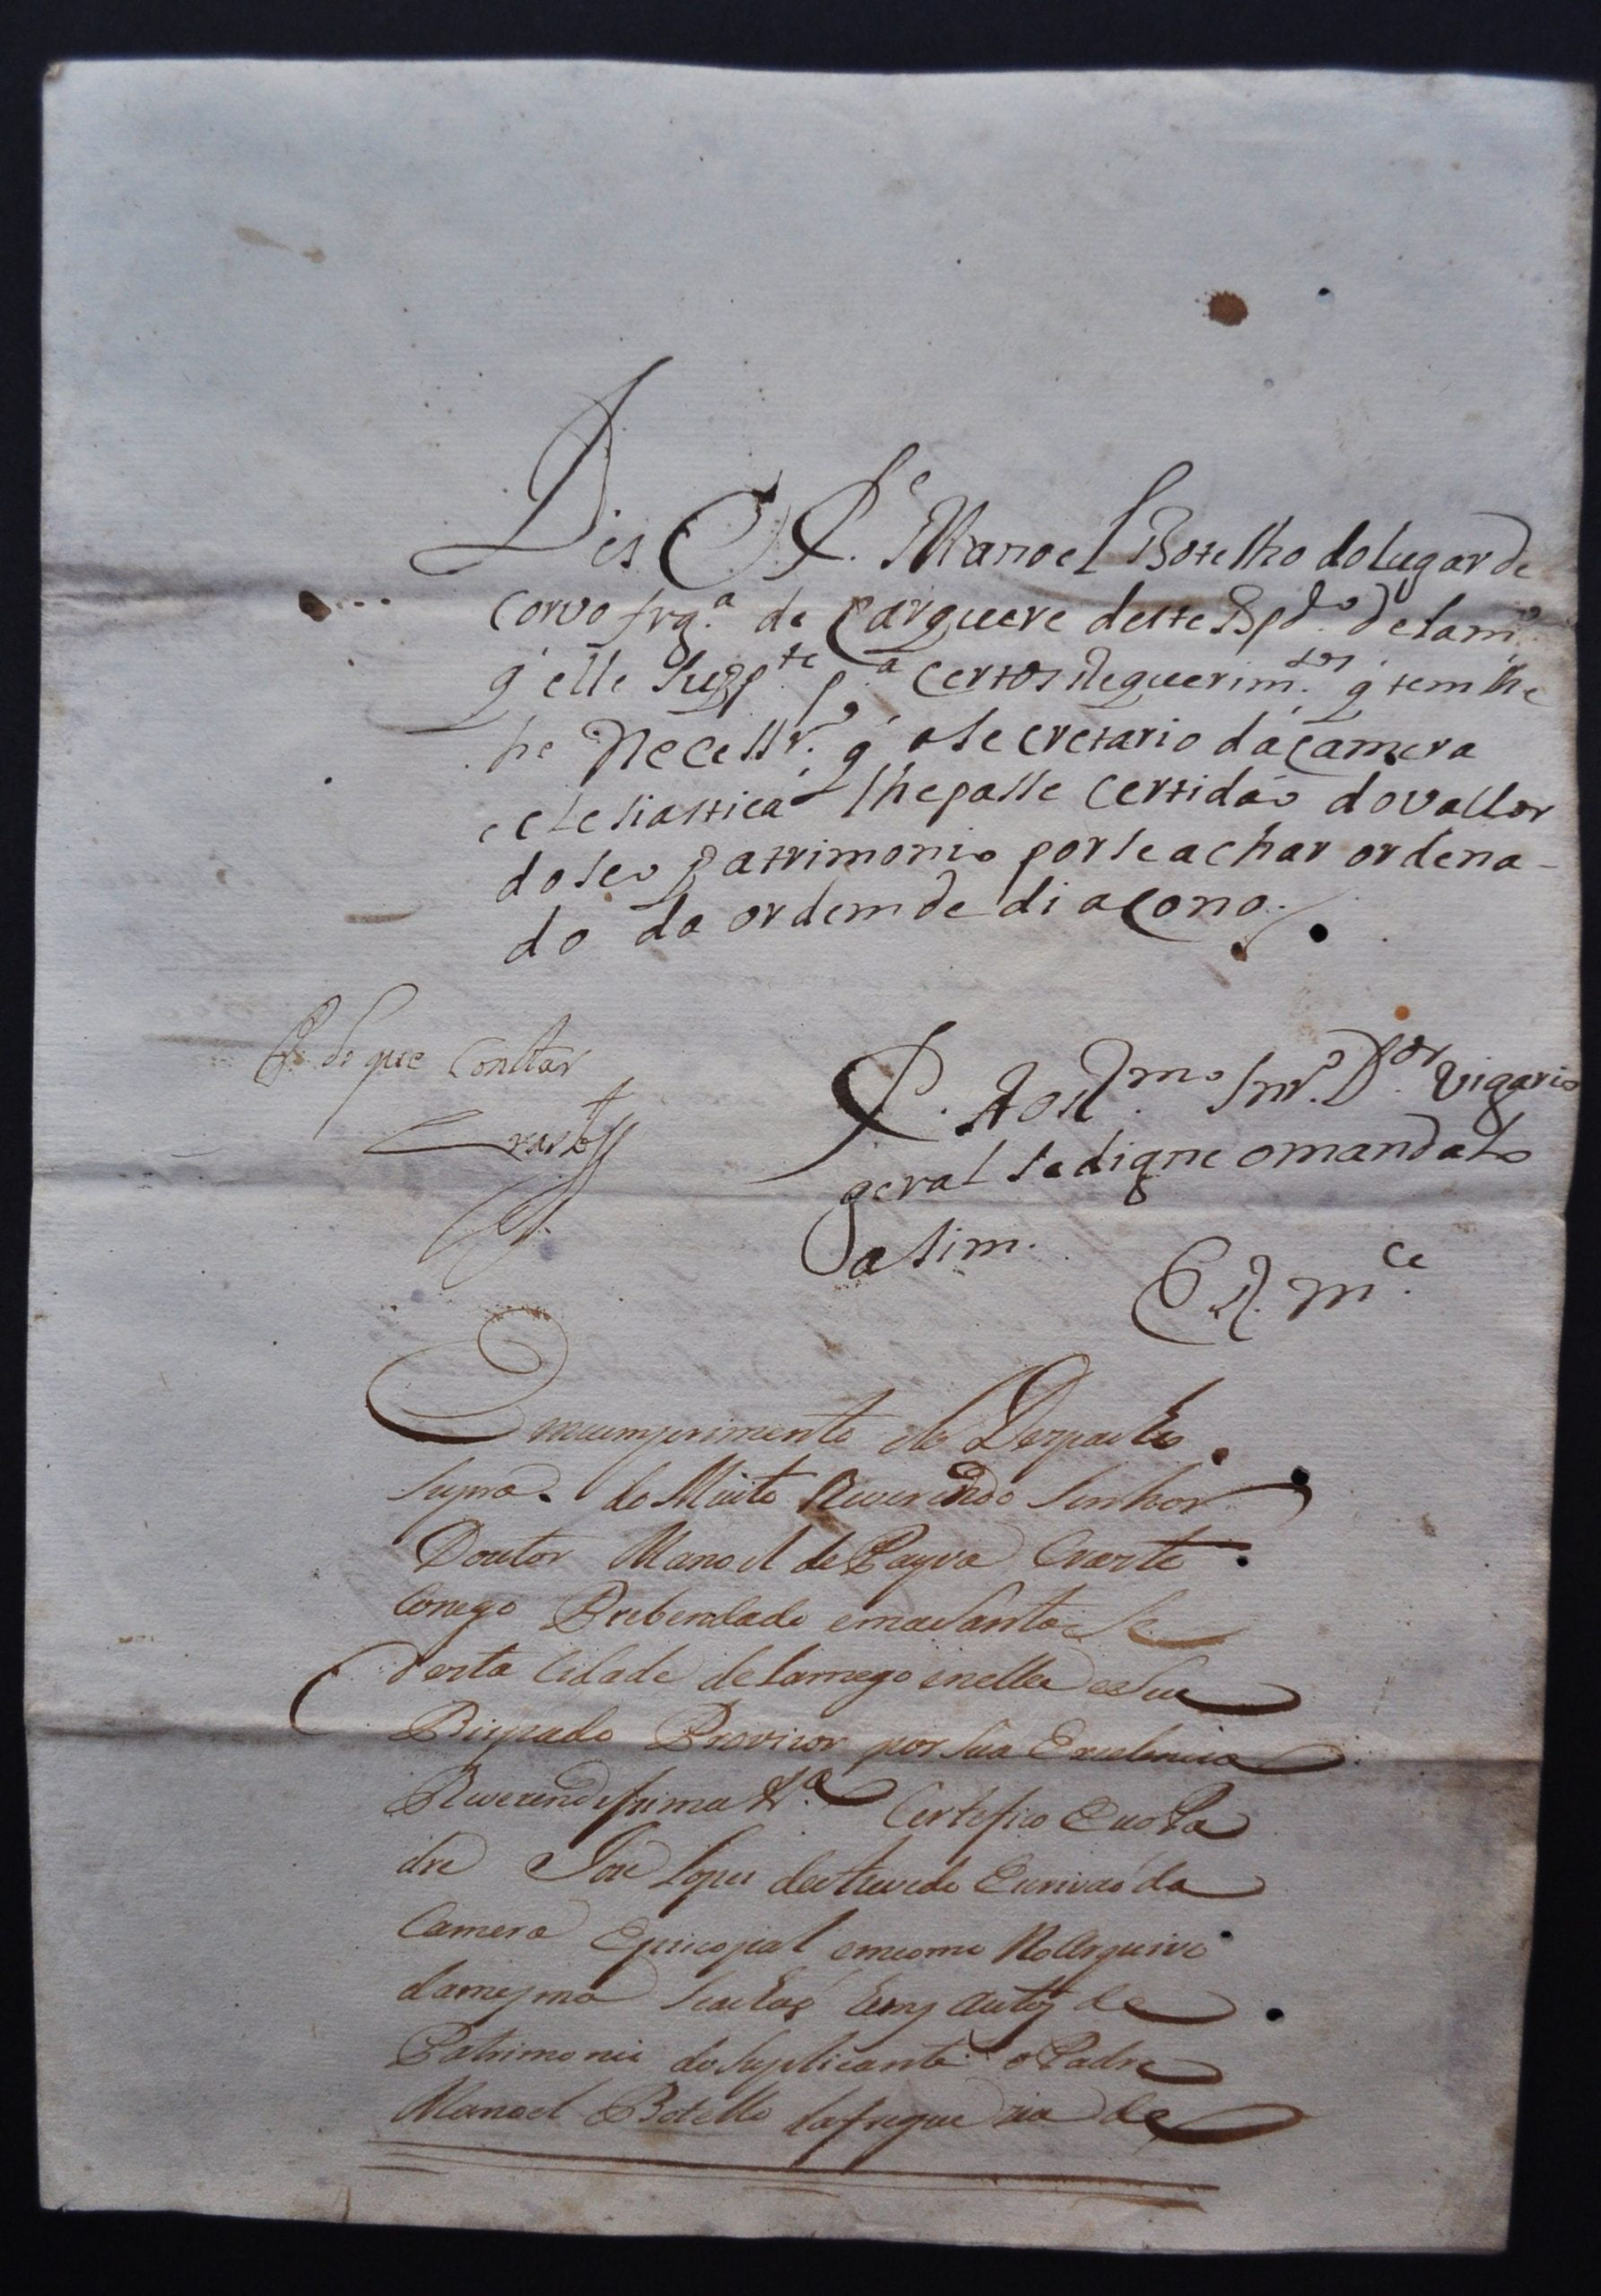 Dis O P.e Manoel Botelho do lugar de
Corvo frg.a de Carquere deste Bpd.o de Lam.o
q̃ elle Supp.te p.a certos Requerim.tos q̃ tem lhe
he Necessr.o q̃ o secretario da Camera
eclesiastica lhe passe certidão do vallor
do seo patrimonio por se achar ordena-
do da ordem de diacono.
P. do que constar
P. Ao R.mo Snr. D.or Vigario
geral se digne o mandalo
asim.
E. R. M.ce
Em cumprimento do Despacho
supra do Muito Reverendo Senhor
Doutor Manoel de Payva
Conego Prebendado em a Santa Se
desta Cidade de Lamego e nella e seu
Bispado Provisor por sua Excelencia
Reverendissima &.a Certefico Eu o Pa
dre Joze Lopes de Azevedo Escrivaõ da
Camera Episcopal em como No Arquivo
da mesma se achaõ huns autos de
Patrimonio do Suplicante o Padre
Manoel Botelho da freguezia de